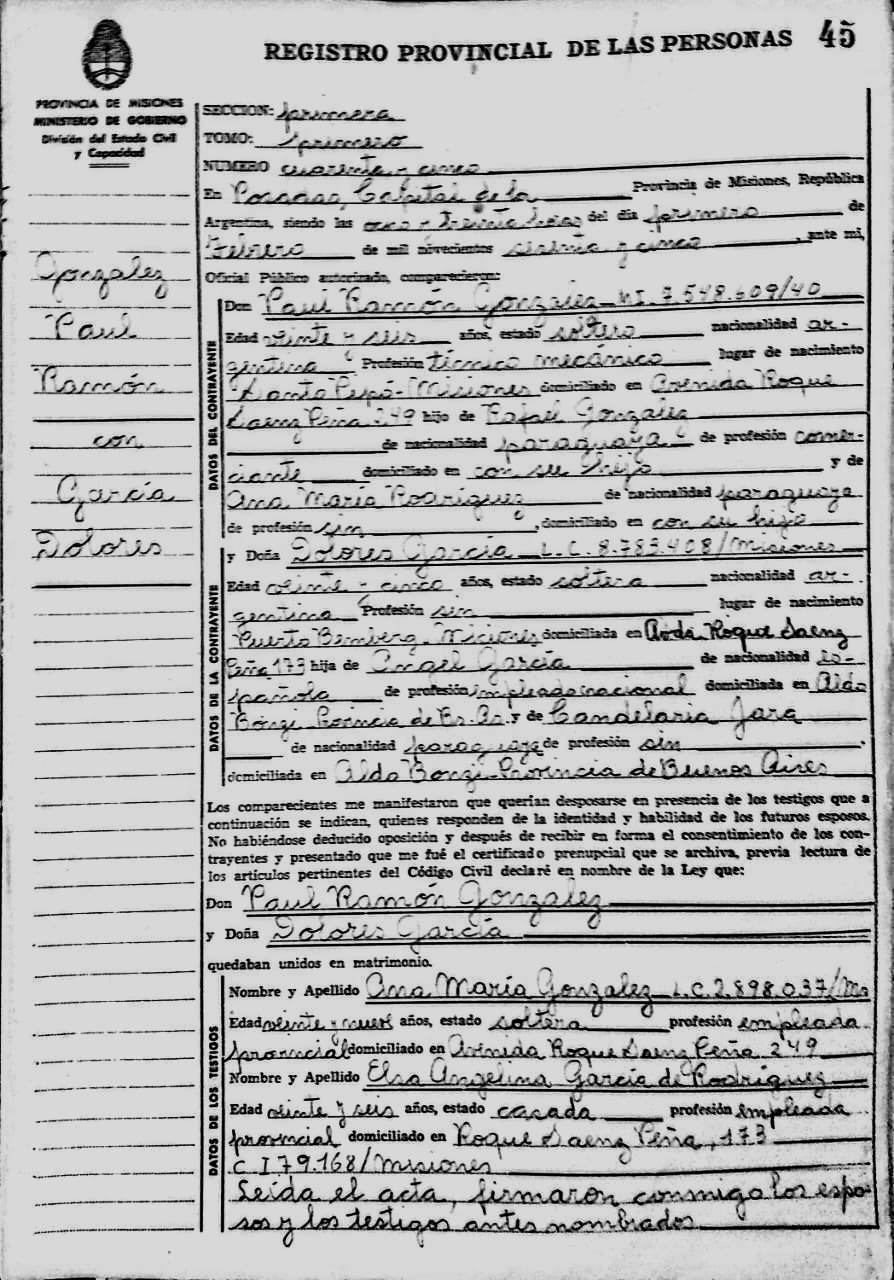 REGISTRO PROVINCIAL DE LAS PERSONAS 45
PROVINCIA DE MISIONES
MINISTERIO DE GOBIERNO
División del Estado Civil
y Capacidad
Gonzalez
Paul
Ramón
con
García
Dolores
SECCION: primera
TOMO: primero
NUMERO cuarenta y cinco
En Posadas, Capital de la Provincia de Misiones, República
Argentina, siendo las ocho y treinta horas del día primero de
Febrero de mil novecientos sesenta y cinco, ante mi,
Oficial Público autorizado, comparecieron:
DATOS DEL CONTRAYENTE
Don Paul Ramón Gonzalez - M.I. 7.548.609/40
Edad veinte y seis años, estado soltero nacionalidad ar-
gentina Profesión técnico mecánico lugar de nacimiento
Santo Pipó - Misiones domiciliado en Avenida Roque
Saenz Peña 249 hijo de Rafael Gonzalez
de nacionalidad paraguaya - de profesión comer-
ciante domiciliado en con su hijo y de
Ana María Rodríguez de nacionalidad paraguaya
de profesión sin, domiciliado en con su hijo
DATOS DE LA CONTRAYENTE
y Doña Dolores García - L.C. 8.783.408/Misiones
Edad veinte y cinco años, estado soltera nacionalidad ar-
gentina Profesión sin lugar de nacimiento
Puerto Bemberg - Misiones domiciliada en Avda Roque Saenz
Peña 173 hija de Angel García de nacionalidad es-
pañola de profesión empleado nacional domiciliada en Aldo
Bonzi - Provincia de Bs. As. y de Candelaria Jara
de nacionalidad paraguaya de profesión sin.
domiciliada en Aldo Bonzi - Provincia de Buenos Aires
Los comparecientes me manifestaron que querían desposarse en presencia de los testigos que a
continuación se indican, quienes responden de la identidad y habilidad de los futuros esposos.
No habiéndose deducido oposición y después de recibir en forma el consentimiento de los con-
trayentes y presentado que me fué el certificado prenupcial que se archiva, previa lectura de
los artículos pertinentes del Código Civil declaré en nombre de la Ley que:
Don Paul Ramón Gonzalez
y Doña Dolores García
quedaban unidos en matrimonio.
DATOS DE LOS TESTIGOS
Nombre y Apellido Ana María Gonzalez - L.C. 2.898.037/Ms
Edad veinte y nueve años, estado soltera profesión empleada
provincial domiciliado en Avenida Roque Saenz Peña 249
Nombre y Apellido Elsa Angelina García de Rodríguez
Edad veinte y seis años, estado casada profesión empleada
provincial domiciliado en Roque Saenz Peña, 173
C.I 79.168/Misiones
Leída el acta, firmaron conmigo los espo-
sos y los testigos antes nombrados